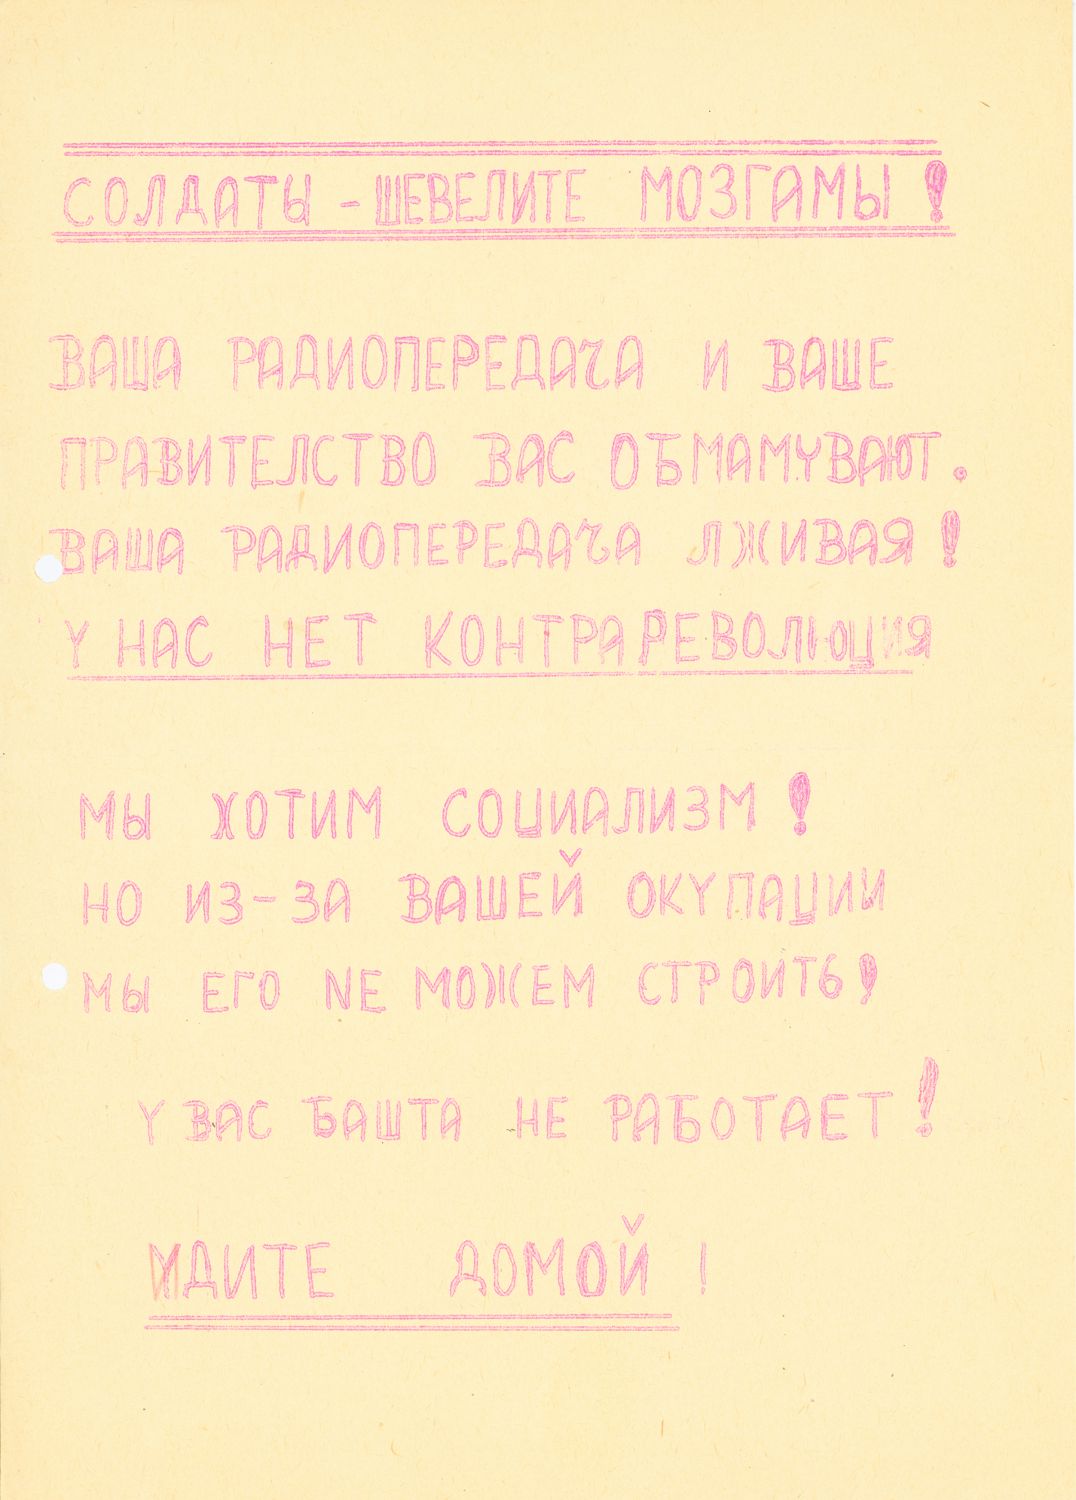 СОЛДАТЫ - ШЕВЕЛИТЕ МОЗГАМЫ!
ВАША РАДИОПЕРЕДАЧА И ВАШЕ
ПРАВИТЕЛСТВО ВАС ОБМАМУВАЮТ.
ВАША РАДИОПЕРЕДАЧА ЛЖИВАЯ!
У НАС НЕТ КОНТРАРЕВОЛЮЦИЯ
МЫ ХОТИМ СОЦИАЛИЗМ!
НО ИЗ-ЗА ВАШЕЙ ОКУПАЦИИ
МЫ ЕГО NЕ МОЖЕМ СТРОИТЬ!
У ВАС БАШТА НЕ РАБОТАЕТ!
ИДИТЕ ДОМОЙ!